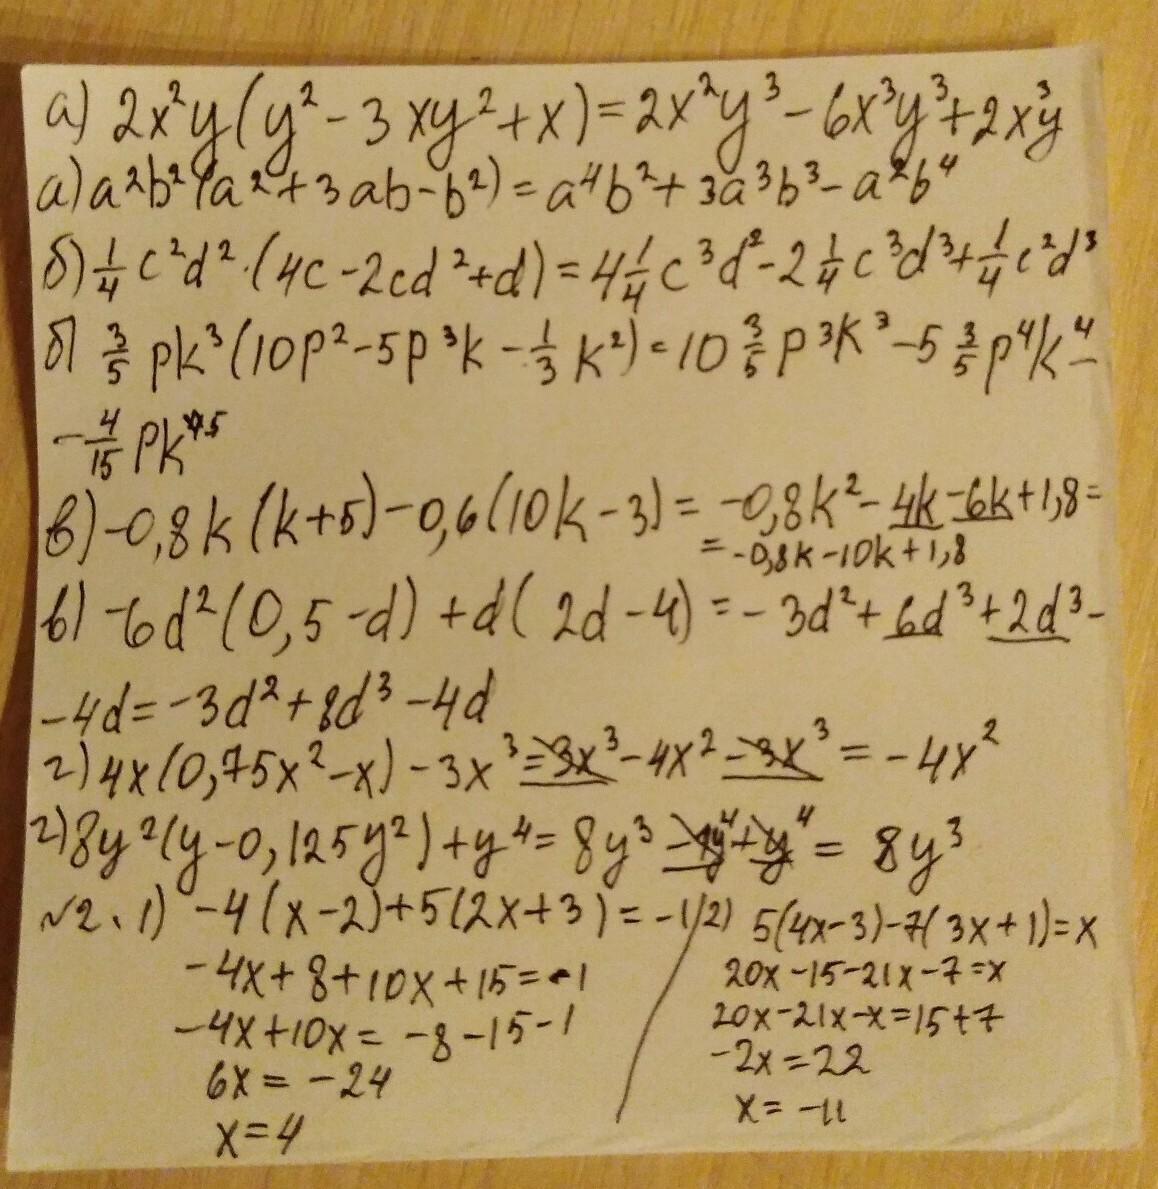 а) 2x²y(y² - 3xy² + x) = 2x²y³ - 6x³y³ + 2x³y
а) a²b²(a² + 3ab - b²) = a⁴b² + 3a³b³ - a²b⁴
б) 1/4 c²d² · (4c - 2cd² + d) = 4 1/4 c³d² - 2 1/4 c³d³ + 1/4 c²d³
б) 3/5 pk³(10p² - 5p³k - 1/3 k²) = 10 3/5 p³k³ - 5 3/5 p⁴k⁴ -
- 4/15 pk⁵
в) -0,8k(k+5) - 0,6(10k - 3) = -0,8k² - 4k - 6k + 1,8 =
= -0,8k - 10k + 1,8
в) -6d²(0,5 - d) + d(2d - 4) = -3d² + 6d³ + 2d³ -
-4d = -3d² + 8d³ - 4d
г) 4x(0,75x² - x) - 3x³ = 3x³ - 4x² - 3x³ = -4x²
г) 8y²(y - 0,125y²) + y⁴ = 8y³ - 1y⁴ + y⁴ = 8y³
№2. 1) -4(x-2)+5(2x+3) = -1
-4x + 8 + 10x + 15 = -1
-4x + 10x = -8 - 15 - 1
6x = -24
x = 4
2) 5(4x-3) - 7(3x+1) = x
20x - 15 - 21x - 7 = x
20x - 21x - x = 15 + 7
-2x = 22
x = -11